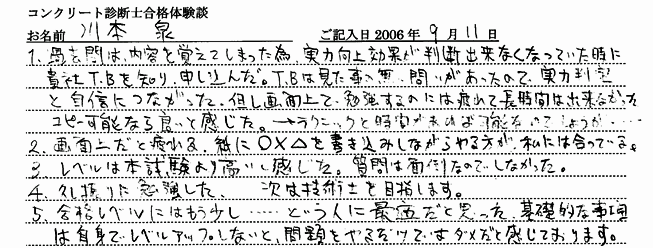 コンクリート診断士合格体験談
お名前 川本 泉 ご記入日2006年9月11日
1. 過去問は、内容を覚えてしまった為、実力向上効果が判断出来なくなっていた時に
貴社T.Bを知り、申し込んだ。T.Bは見た事の無い問いがあったので、実力判定
と自信につながった。但し画面上で、勉強するのには疲れて長時間は出来なかった
コピー可能なら良いと感じた。→テクニックと時間があれば可能なのでしょうが……
2. 画面上だと疲れる。紙に○×△を書き込みしながらやる方が、私には合っている。
3. レベルは本試験より高いと感じた。質問は面倒なのでしなかった。
4. 久し振りに勉強した。 次は技術士を目指します。
5. 合格レベルにはもう少し……という人に最適だと思った。基礎的な事項
は自身でレベルアップしないと、問題をやるだけではダメだと感じております。